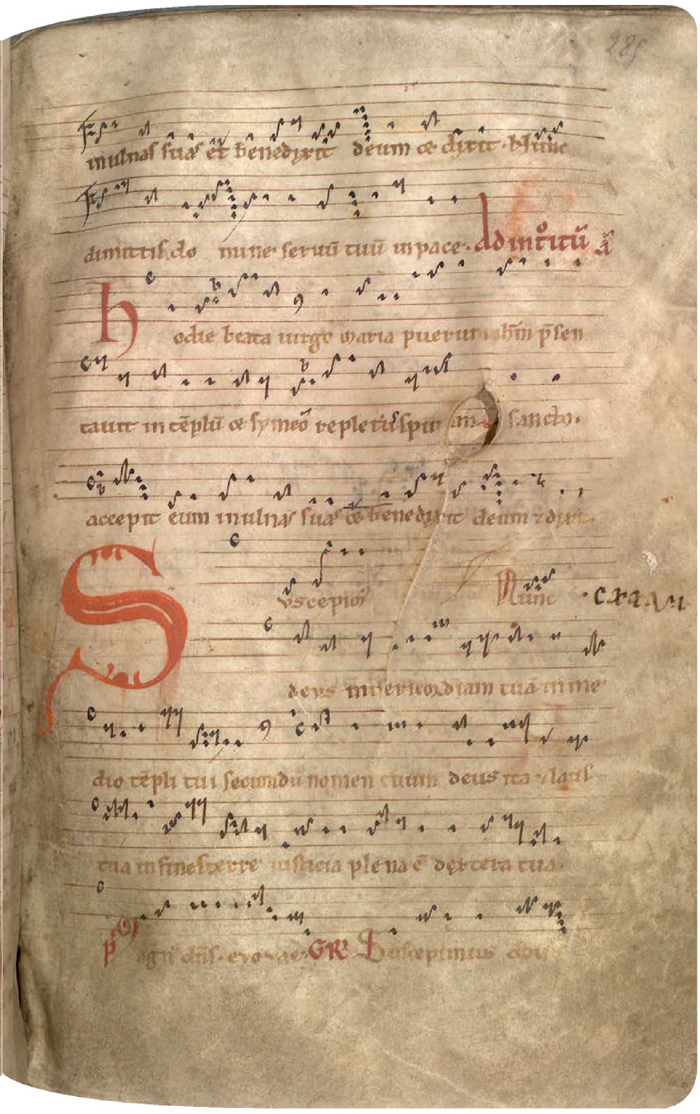 285
in ulnas suas et benedixit deum et dixit. Nunc
dimittis do mine seruū tuū in pace. Ad introitū
Hodie beata uirgo maria puerum ihm p̄sen
tauit in tēplū et symeō repletus spiritu sancto.
accepit eum in ulnas suas et benedixit deum et dixit.
Suscepimus Nunc .cxxxvi
deus misericordiam tuā in me
dio tēpli tui secundū nomen tuum deus ita et laus
tua in fines terre iusticia plena ē dextera tua.
p̄ agn' dn̄s. evovae. GR Suscepimus deus